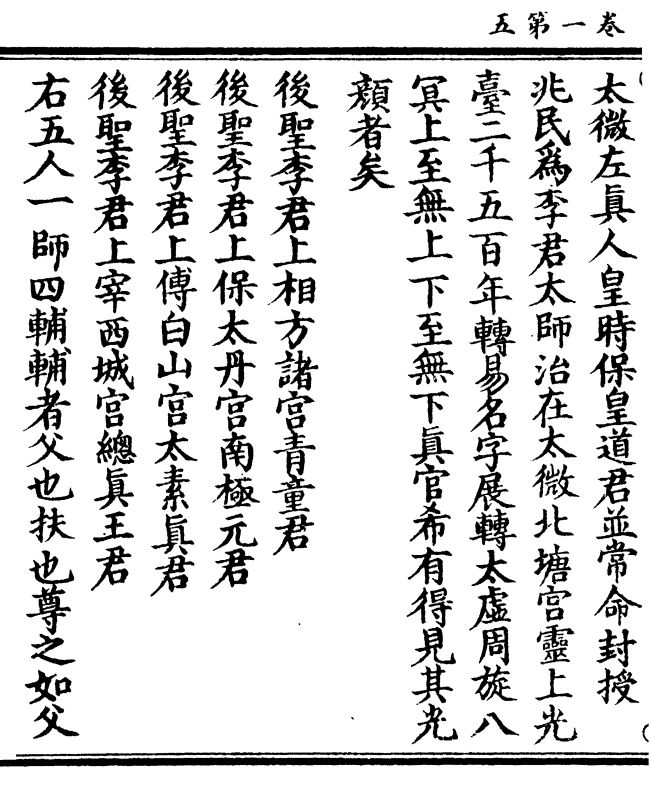 卷一第五
太微左眞人皇時保皇道君並常命封授
兆民爲李君太師治在太微北塘宮靈上光
臺二千五百年轉易名字展轉太虛周旋八
冥上至無上下至無下眞官希有得見其光
顏者矣
後聖李君上相方諸宮青童君
後聖李君上保太丹宮南極元君
後聖李君上傅白山宮太素眞君
後聖李君上宰西城宮總眞王君
右五人一師四輔輔者父也扶也尊之如父